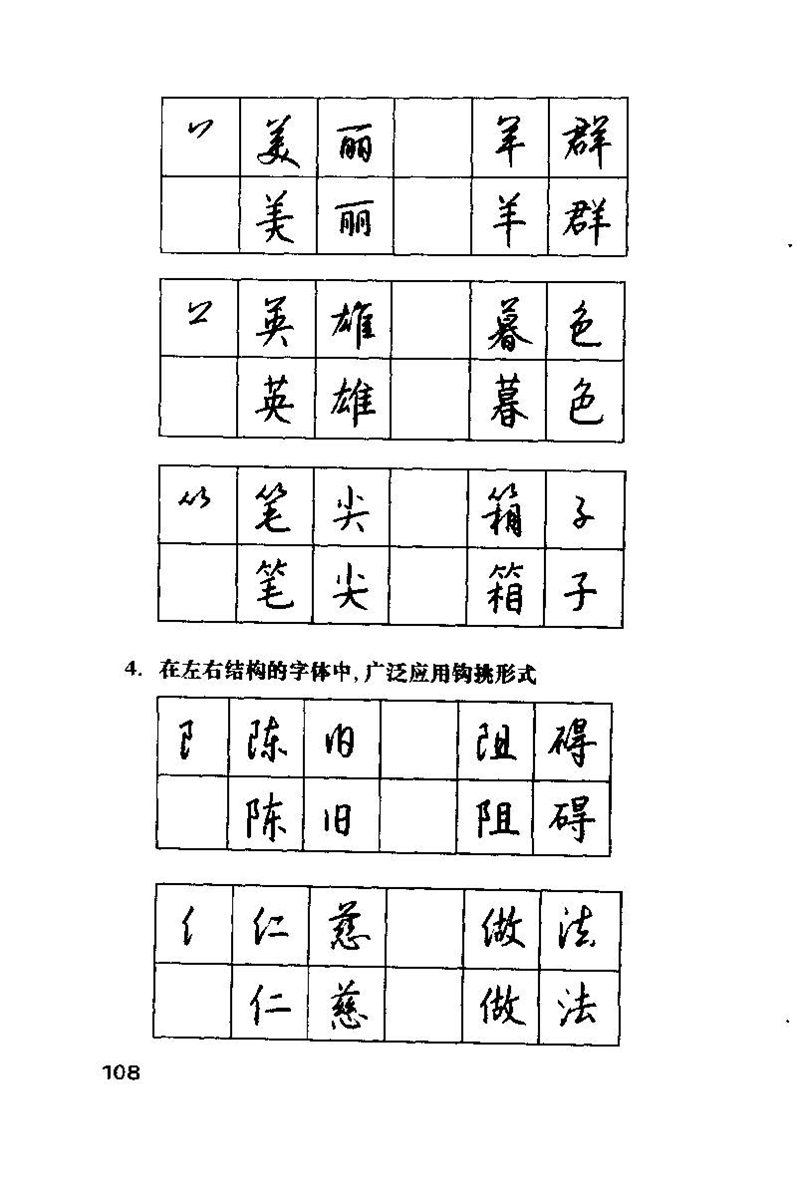 丷 美 丽 羊 群
美 丽 羊 群
英 雄 暮 色
英 雄 暮 色
笔 尖 箱 子
笔 尖 箱 子
4. 在左右结构的字体中,广泛应用钩挑形式
阝 陈 旧 阻 碍
陈 旧 阻 碍
亻 仁 慈 做 法
仁 慈 做 法
108